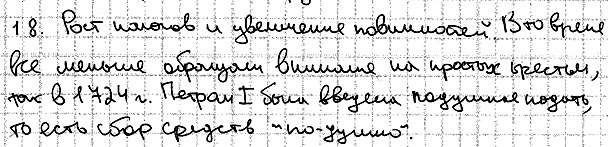 18. Рост налогов и увеличение повинностей. В то время
все меньше обращали внимание на простых крестьян,
так в 1724 г. Петром I была введена подушная подать,
то есть сбор средств "по-душно".